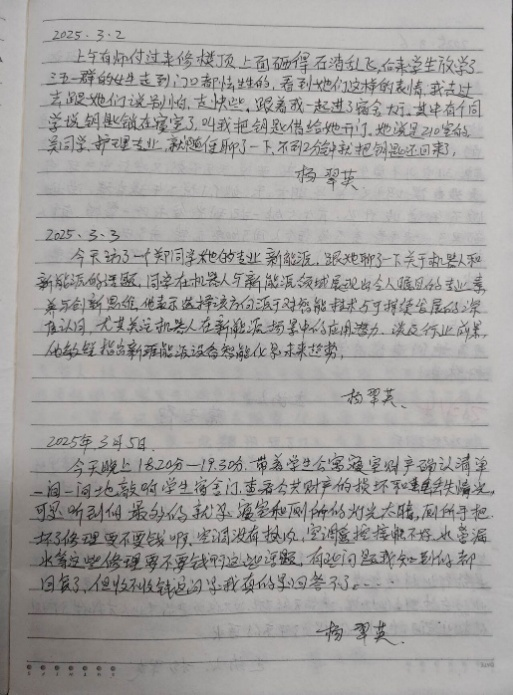 2025.3.2
上午有师付过来修楼顶上面砸得石渣乱飞,后来学生放学了
三五一群的女生走到门口都怯生生的,看到她们这样的表情,我走过
去跟她们说别怕,走快些,跟着我一起进了宿舍大厅,其中有个同
学说钥匙锁在寝室了,叫我把钥匙借给她开门,她说是210室的
吴同学,护理专业,就随便聊了一下,不到2分钟就把钥匙还回来了,
杨翠英
2025.3.3
今天访了一个郑同学她的专业新能源,跟她聊了一下关于机器人和
新能源的话题,同学在机器人与新能源领域展现出令人瞩目的专业素
养与创新思维,他表示选择该方向源于对智能技术与可持续发展的深
度认同,尤其关注机器人在新能源场景中的应用潜力,谈及行业成果,
他敏锐指出新能源设备智能化是未来趋势,
杨翠英.
2025年3月5日.
今天晚上18.20分—19.30分.带着学生公寓寝室财产确认清单
一间一间地敲响学生宿舍门,查看公共财产的损坏和丢失情况,
可是听到们最多的就是寝室和厕所的灯光太暗,厕所手把
坏了修理要不要钱啊,空调没有热风,空调遥控接触不好,水管漏
水等这些修理要不要钱呀这些话题,有些问题我知到的都
回复了,但收不收钱这问是我真的是回答不了.....
杨翠英.